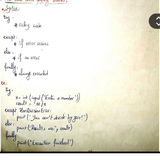 Syntax:
try:
# risky code
except:
# if error occurs
else:
# if no error
finally:
# always executed
ex:
try:
x = int(input("Enter a number"))
result = 10/x
except ZeroDivisionError:
print("You can't divide by zero!")
else:
print("Result is", result)
finally:
print("Execution finished")